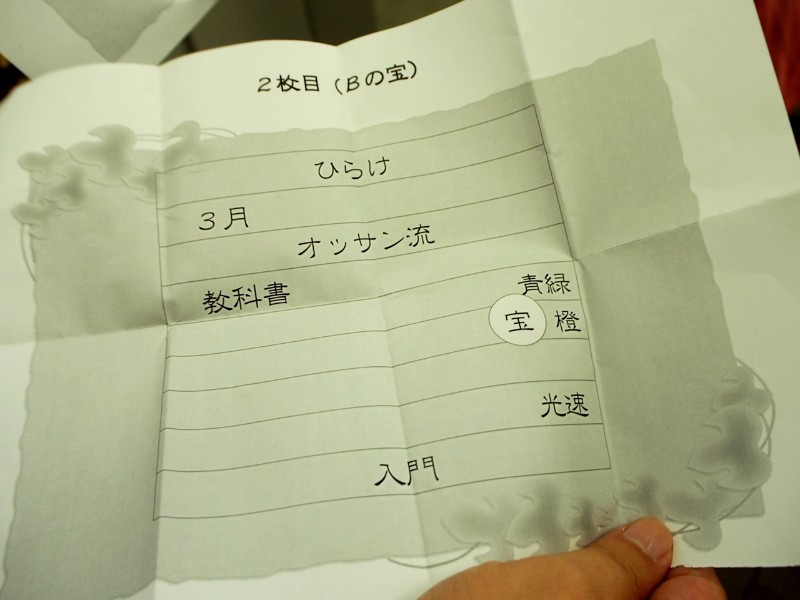 2枚目（Bの宝）
ひらけ
3月
オッサン流
教科書 青緑
宝 橙
光速
入門